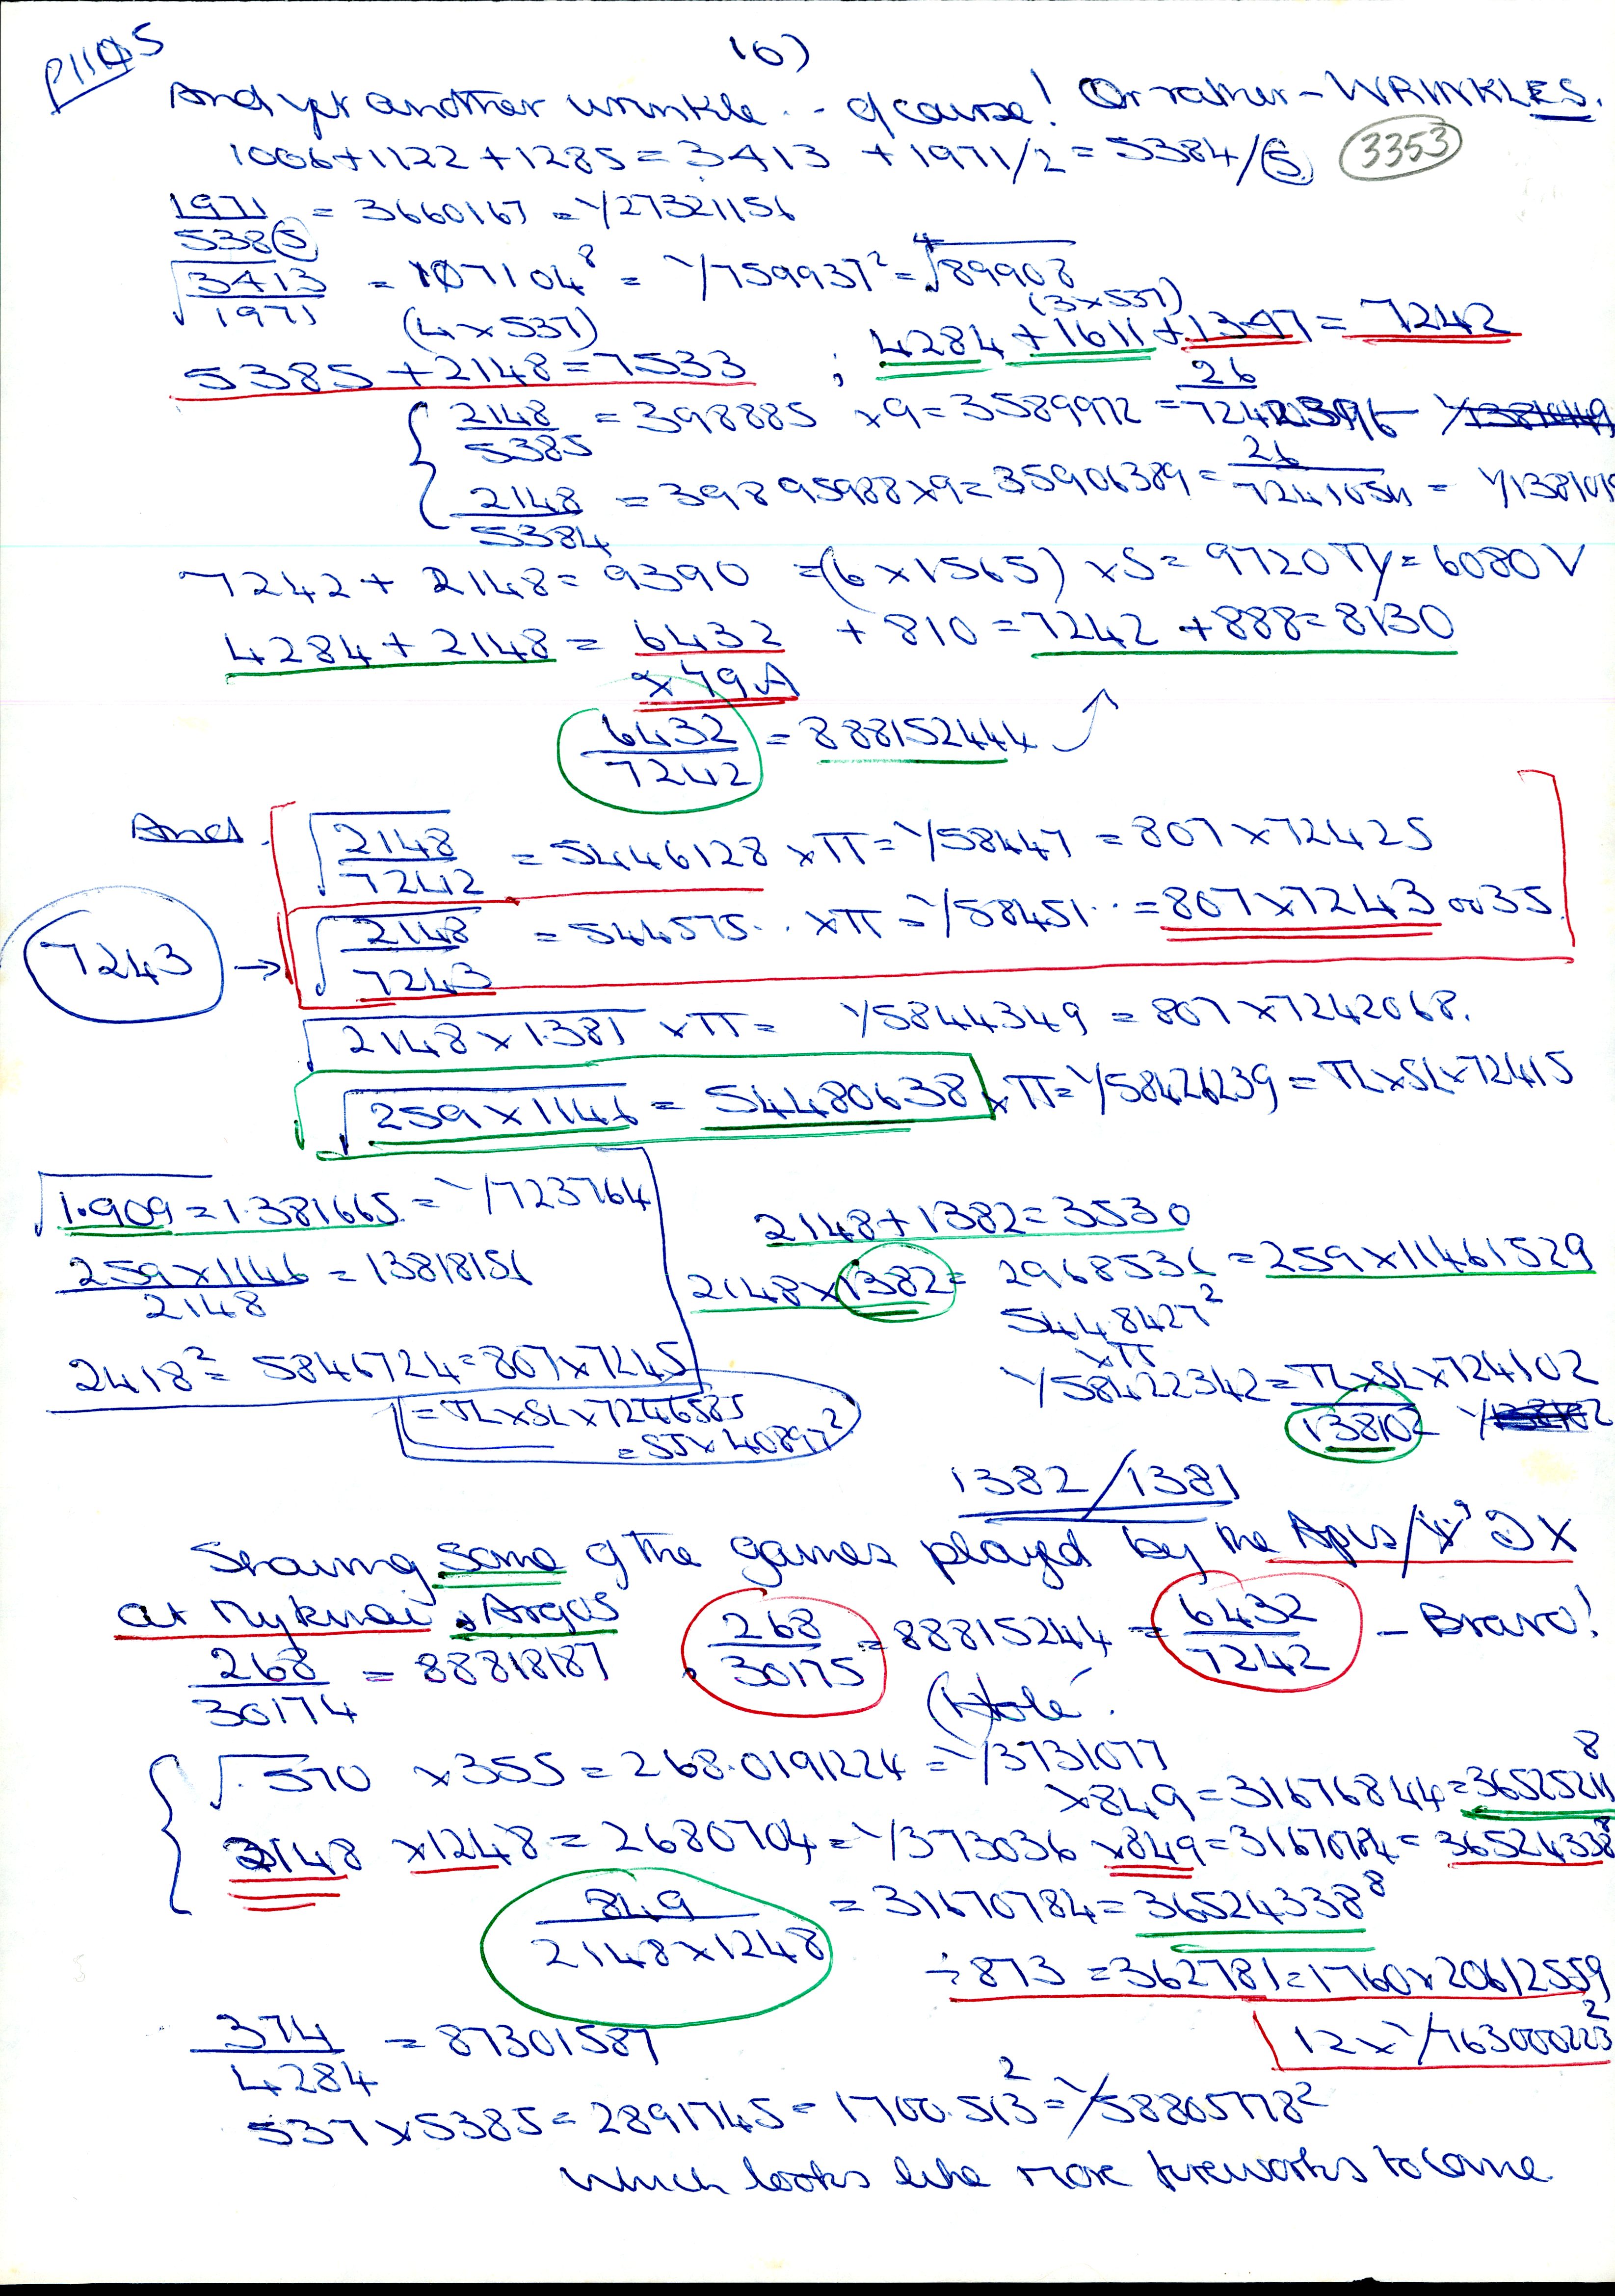 P1145
10)
And yet another wrinkle... of course! Or rather - WRINKLES.
1006+1122+1285=3413 +1971/2=5384/5 3353
1971/5385 = 3660167 = 1/27321156
√3413/1971 = 107104⁸ = 1/759937² = ⁴√89908
(4×537) (3×537)
5385+2148=7533 ; 4284+1611+1347=7242
2148/5385 = 398885 ×9=3589972 = 26/
2148/5384 = 39895988×9=35906389 = 26/7241051 =
7242+2148=9390 =(6×1565) ×5= 9720 TY=6080V
4284+2148=6432 +810=7242 +888=8130
×79A
6432/7242 = 888152444
And √2148/7242 = 5446128 ×π = 1/58447 = 807×72425
7243 → √2148/7243 = 544575.. ×π = 1/58451.. = 807×7243 or 35
√2148×1.381 ×π = 1/5844349 = 807×7242068.
√259×1146 = 54480638 ×π = 1/58426239 = TL×SL×72415
√1.909=1.381665 = 1/723764
2148+1382=3530
259×1146/2148 = 13818156
2148×1382= 2968536 = 259×11461529
5448427²
×π
2418²= 5846724=807×7245
1/58422342=TL×SL×724102
=TL×SL×7246585
138102
=SJ×40897²
1382/1381
Showing some of the games played by the Apis/
at Mykenai, Argos
268/30174 = 88818187 , 268/30175 = 88815244 = 6432/7242 - Bravo!
√.570 ×355=268.0191224 = 1/3731077
×849=31676844=36525211⁸
2148 ×1248=2680704 = 1/373036 ×849=31670784 = 36524338⁸
849/2148×1248 = 31670784=36524338⁸
÷873 =362781=1760×20612559
12×1/763000223²
374/4284 = 87301587
537×5385=2891745=1700.513²=1/58805778²
which looks like more fireworks to come